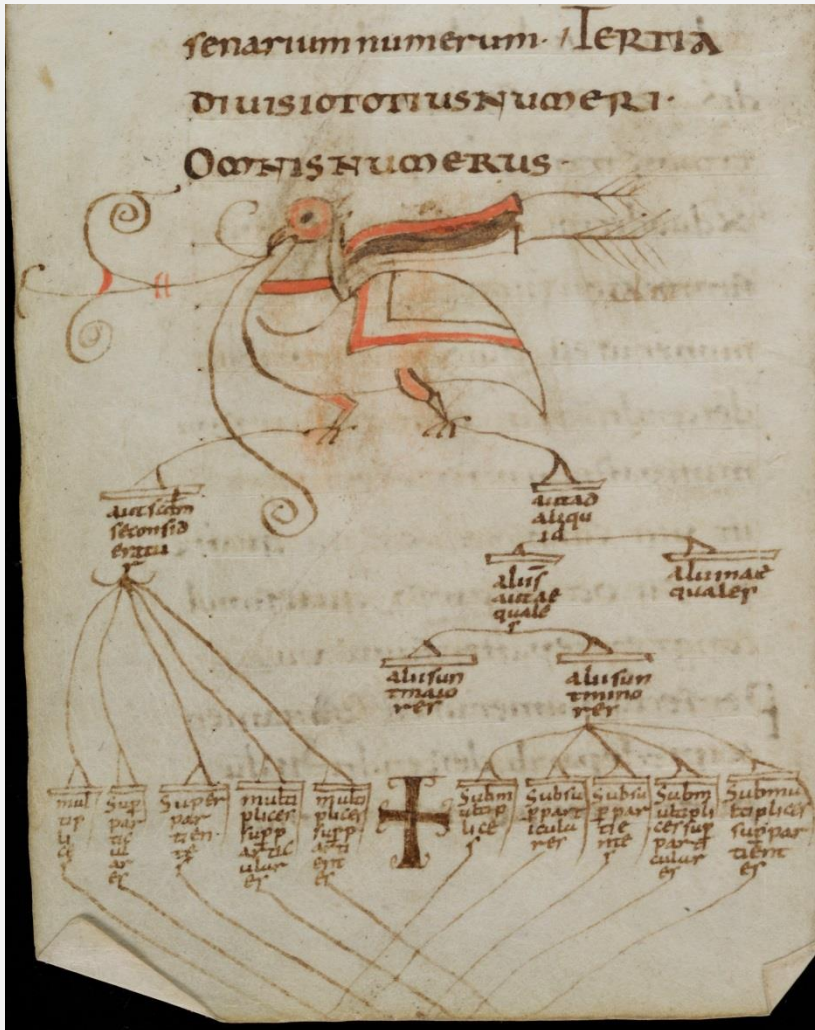 senarium numerum · TERTIA
DIUISIO TOTIUS NUMERI ·
OMNIS NUMERUS ·
aut scdm
seconsid
eratu
r
aut ad
aliqu
id
aliis
aut ae
quale
s
alii inae
quales
alii sun
t maio
res
alii sun
t mino
res
mul
tip
lic
es
Sup
par
tic
ul
ar
es
Super
par
tien
tes
multi
plices
supp
artic
ular
es
multi
plices
supp
arti
ent
es
Subm
ultip
lice
s
Subsu
ppart
icula
res
Subsu
ppar
tie
nte
s
Subm
ultipli
ces sup
partic
ular
es
Submu
ltiplices
suppar
tient
es